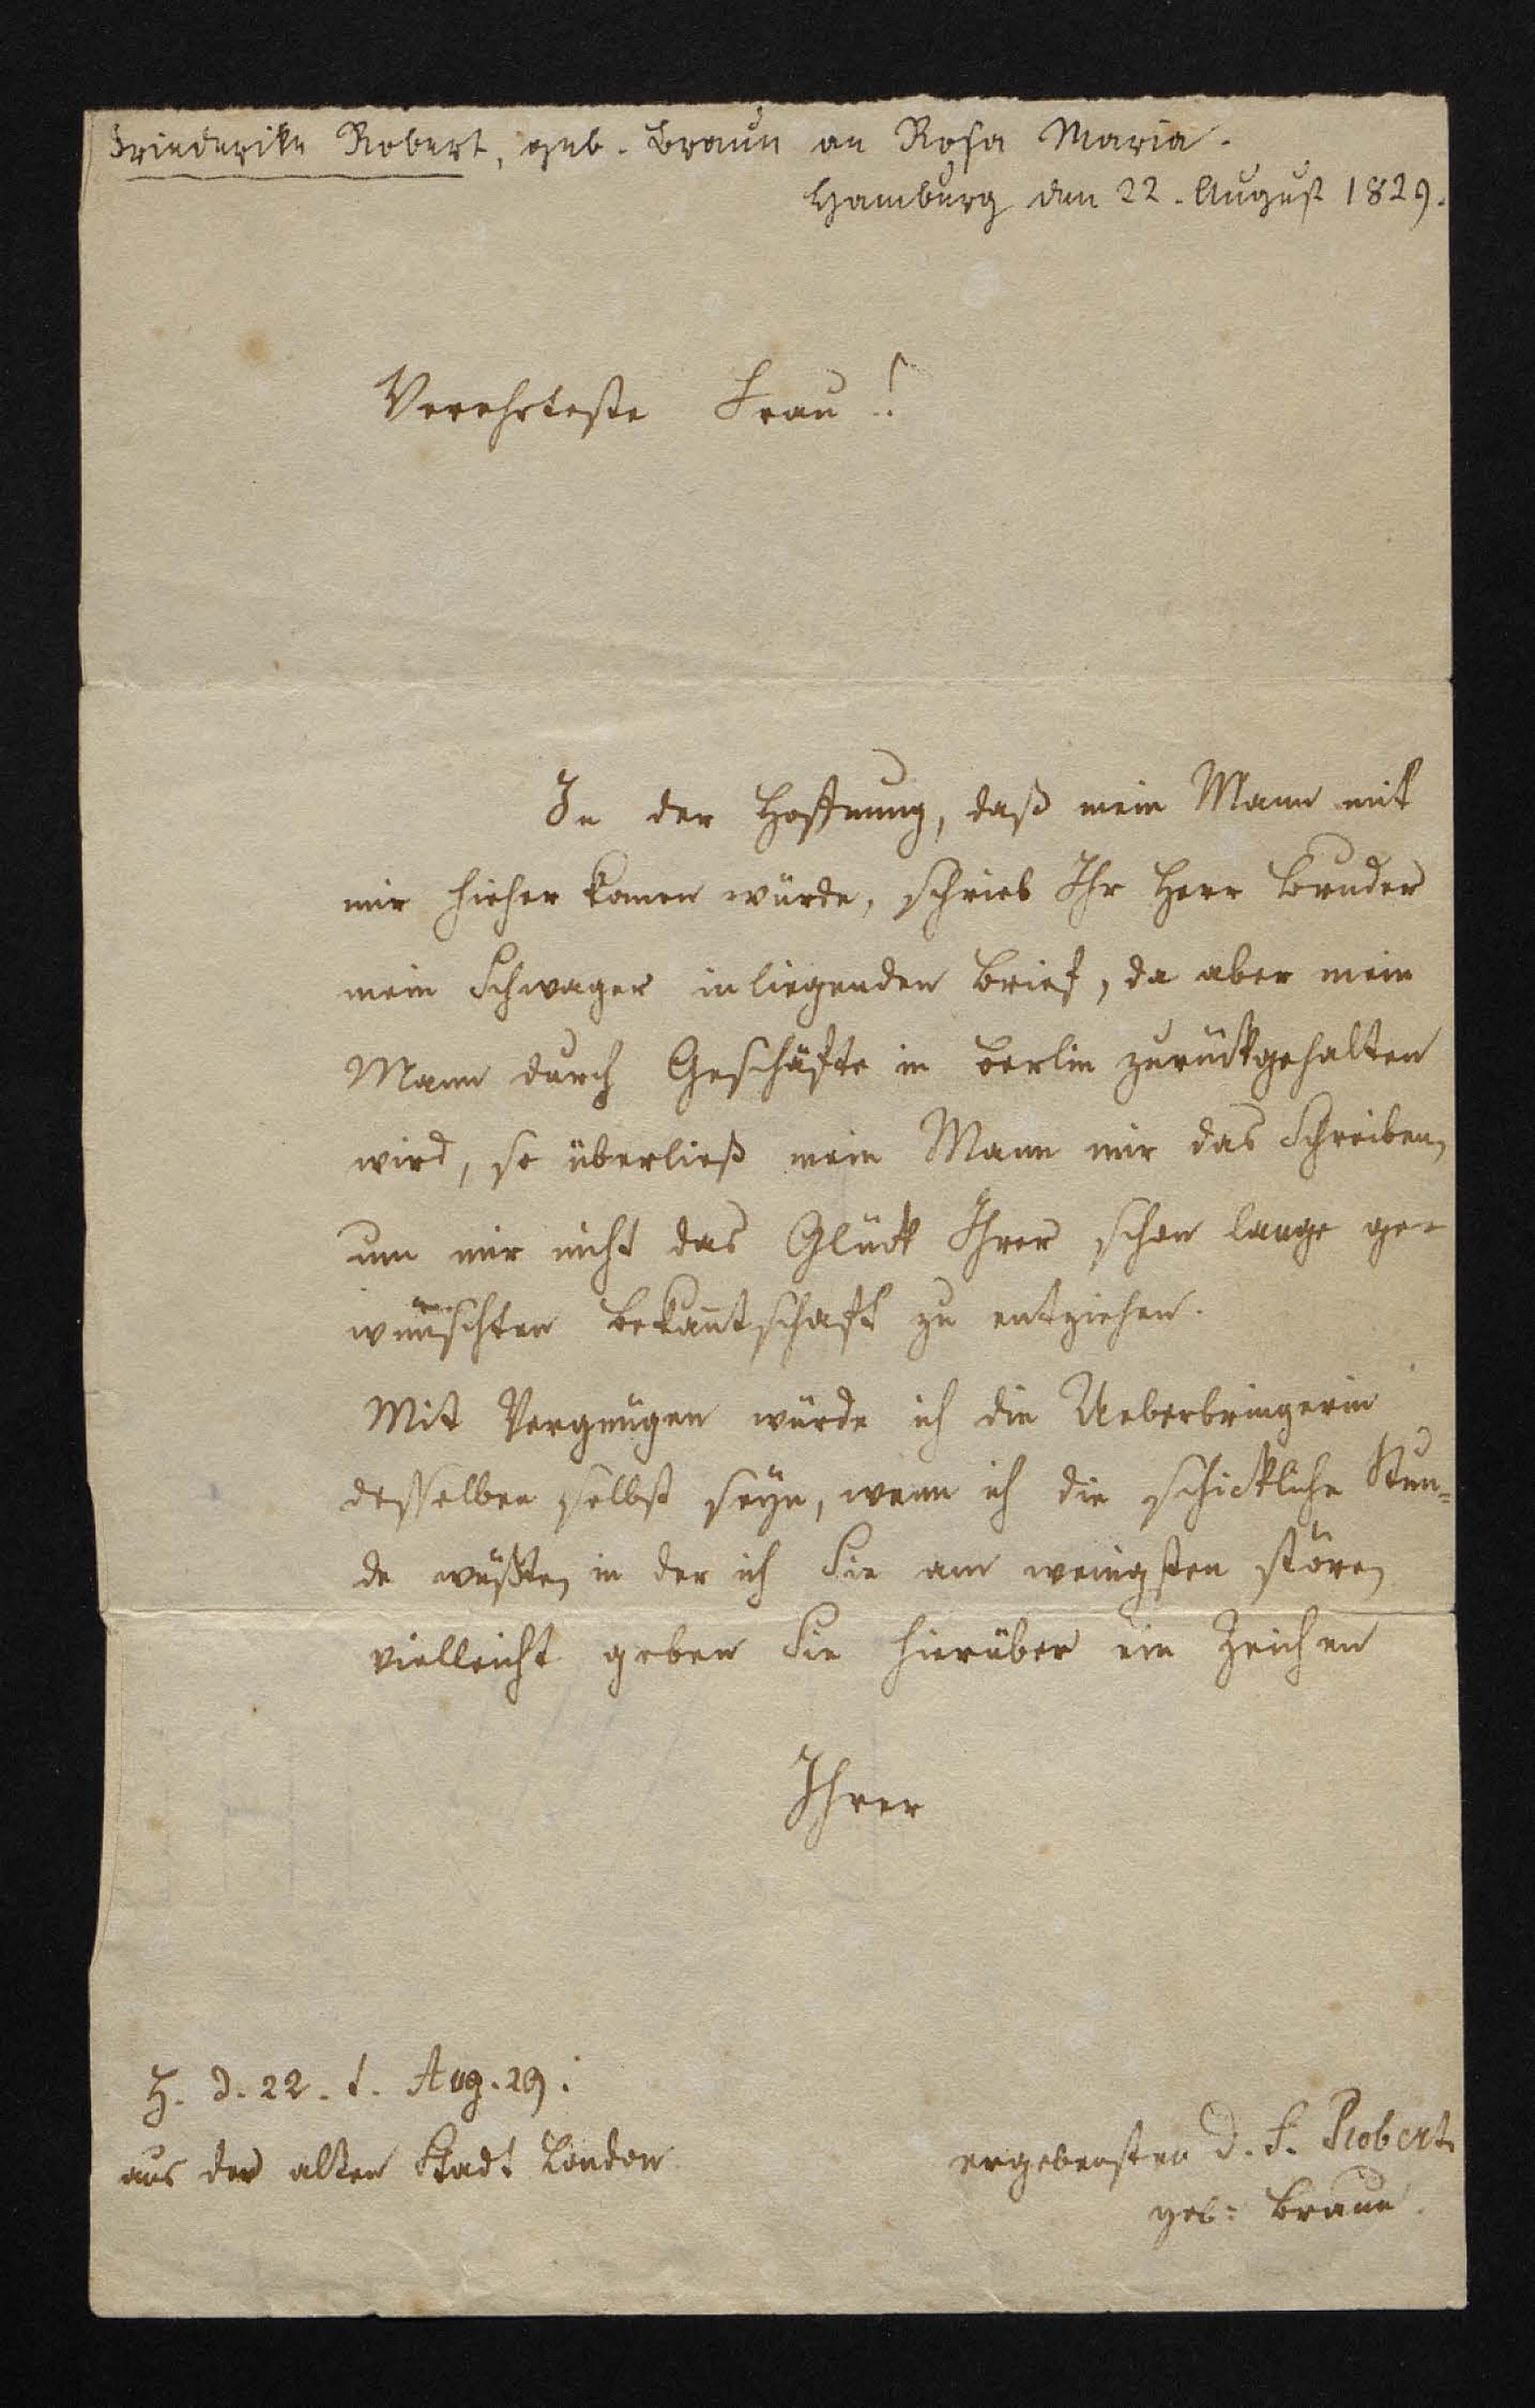 Friederike Robert, geb. Braun an Rosa Maria.
Hamburg den 22. August 1829.
Verehrteste Frau!
In der Hoffnung, daß mein Mann mit
mir hieher komen würde, schrieb Ihr Herr Bruder
mein Schwager inliegenden Brief, da aber mein
Mann durch Geschäfte in Berlin zurückgehalten
wird, so überließ mein Mann mir das Schreiben,
um mir nicht das Glück Ihrer schon lange ge-
wünschten Bekantschaft zu entziehen.
Mit Vergnügen würde ich die Ueberbringerin
desselben selbst seyn, wenn ich die schickliche Stun-
de wüßte, in der ich Sie am wenigsten störe,
vielleicht geben Sie hierüber ein Zeichen
Ihrer
H. d. 22. t. Aug. 29.
aus der alten Stadt London
ergebensten d. F. Robert.
geb: Braun.